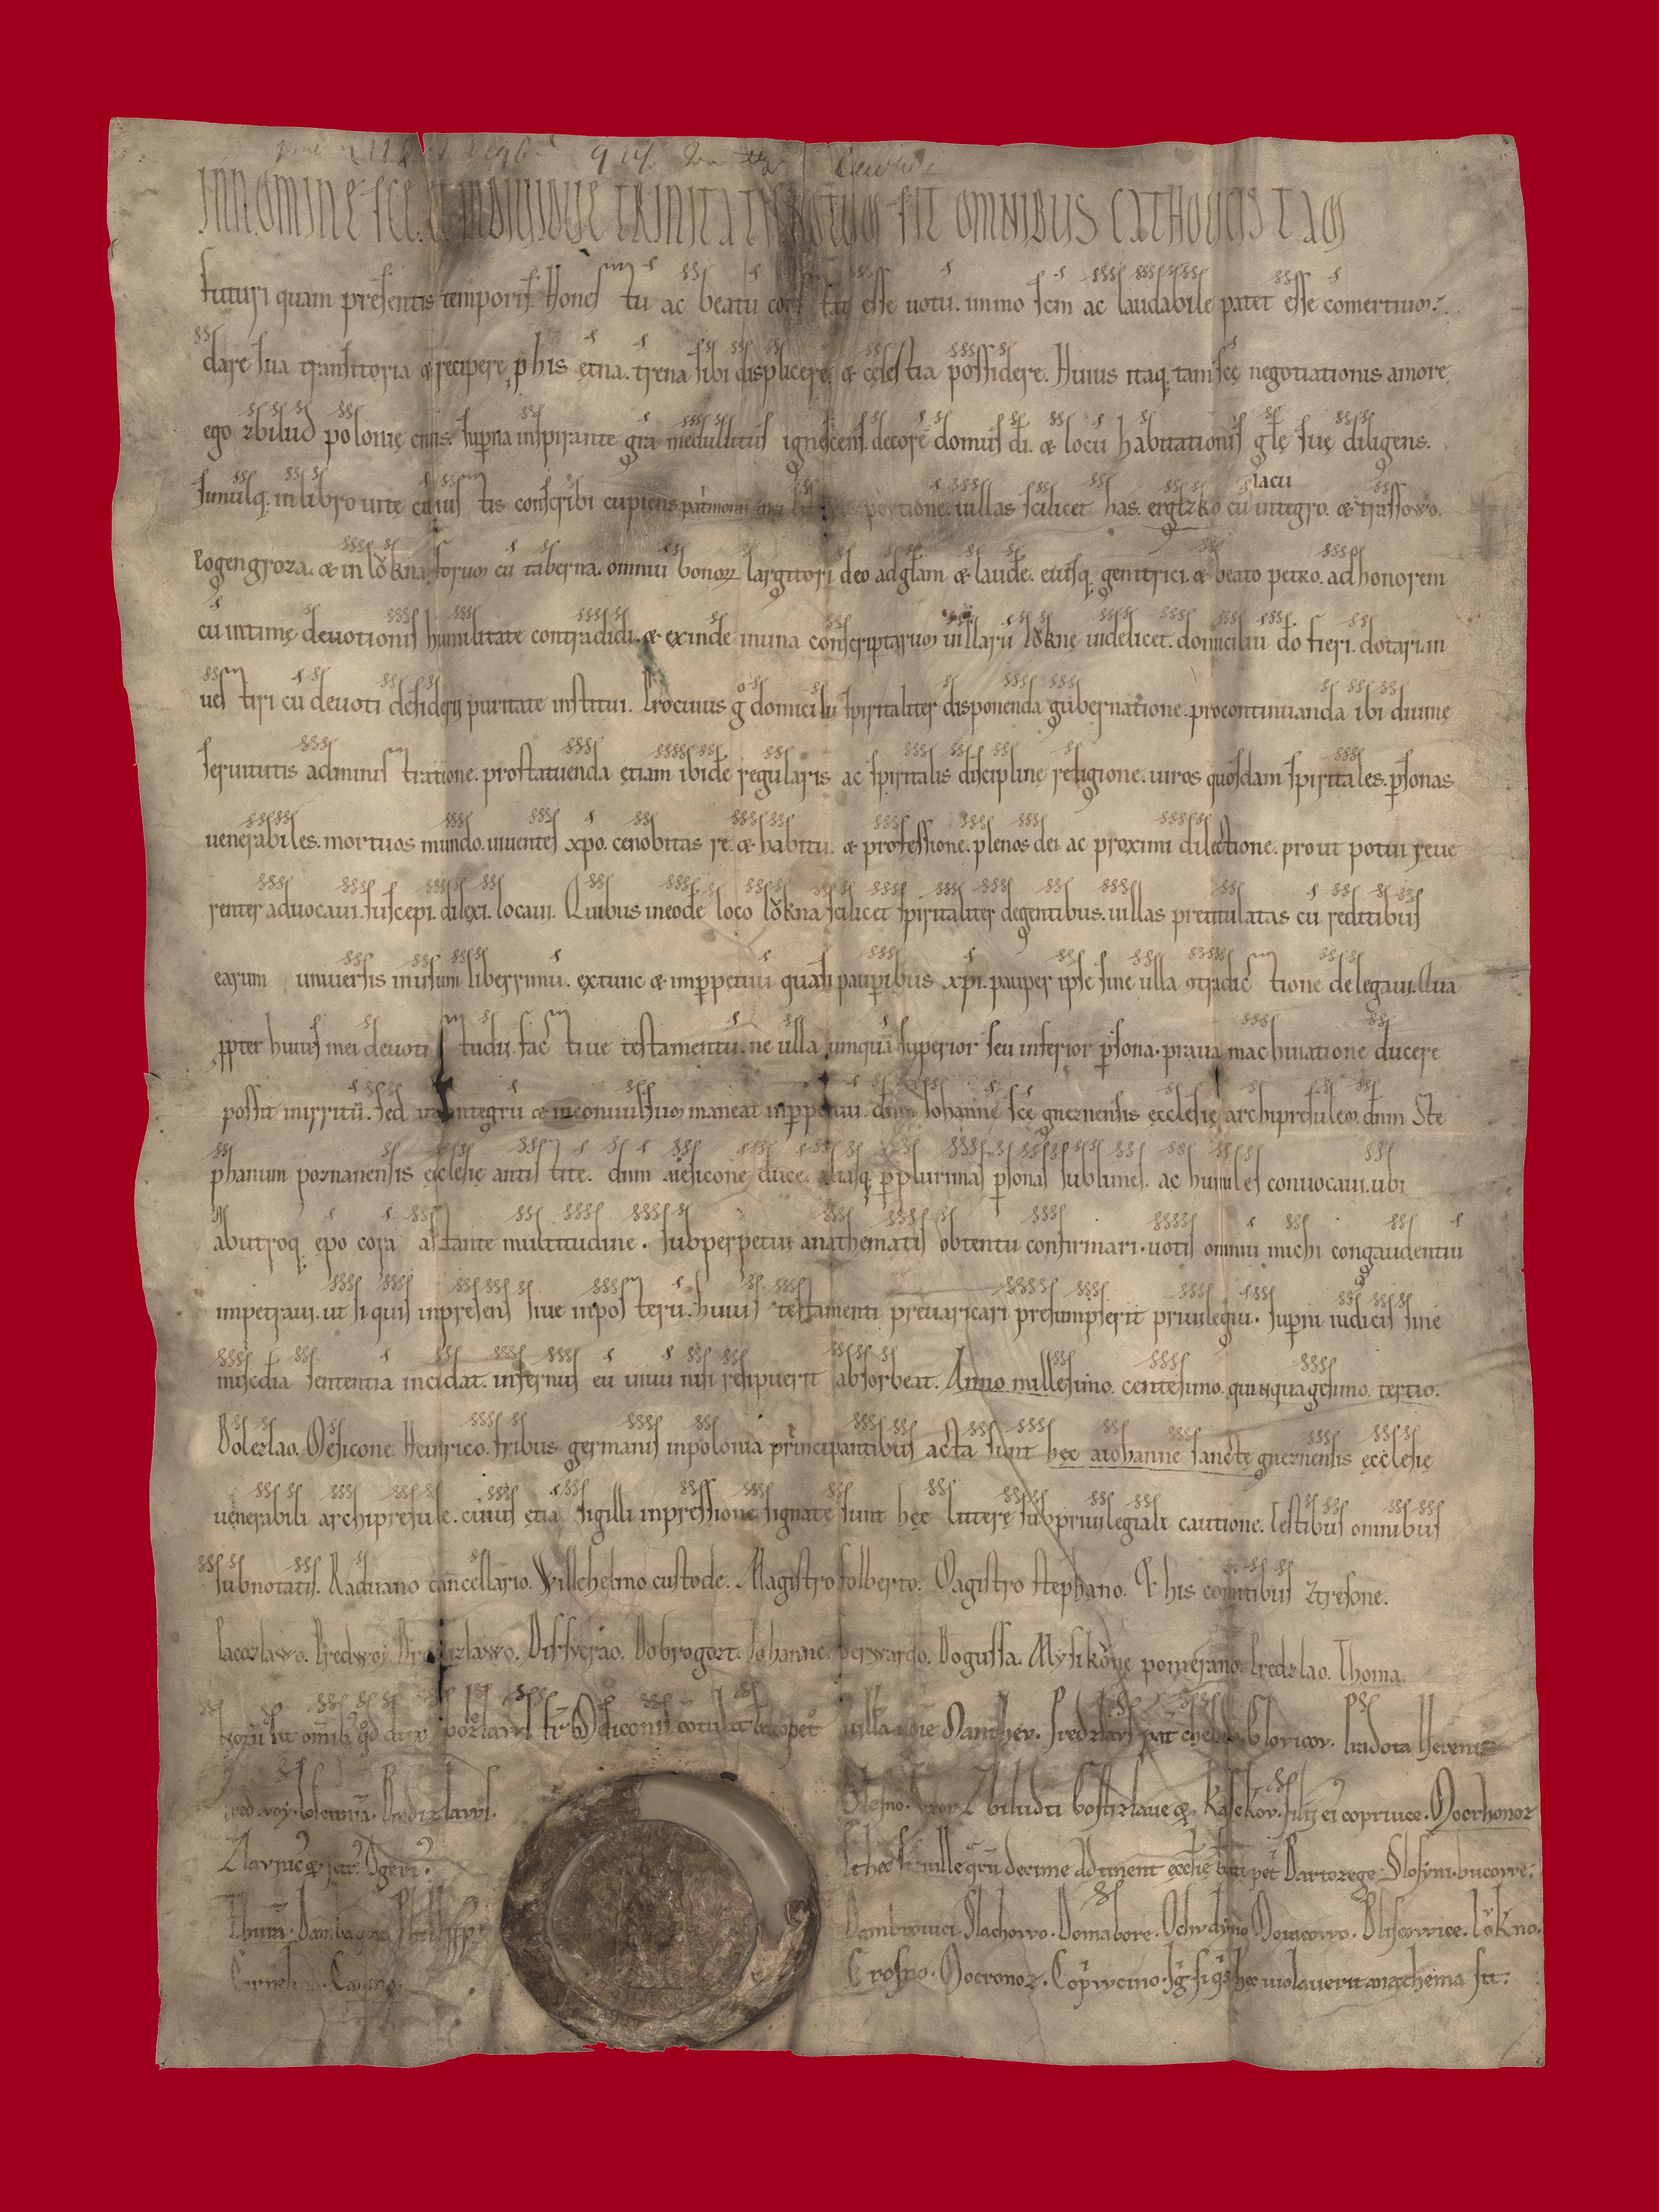 INNOMINE SCE ET INDIVIDUE TRINITATIS NOTUM SIT OMNIBUS CATHOLICIS TAM
futuri quam presentis temporis. Honestu ac beatu esse uotu. immo scm ac laudabile patet esse comertium.
dare sua transitoria & recipere phis etna. trena sibi displicere. & celestia possidere. Huius itaq. tam sce negotiationis amore
ego zbilud polonie ciuis. supna inspirante gra medullitus ignescens. decore domus di. & locu habitationis gle sue diligens.
lacu
simulq. in libro uite conscribi cupiens portione. uillas scilicet has. ergizko cu integro. & trassowo.
Rogengroza. & in lokna forum cu taberna. omniu bonor largitori deo ad glam & laude. eiusq. genitrici. & beato petro. ad honorem
cu intime deuotionis humilitate contradidi. & exinde in una conscriptarum uillaru lokne uidelicet. domiciliu do fieri. dotari. in
uestiri cu deuoti desiderii puritate institui. Pro cuius g domicilii spiritaliter disponenda gubernatione. pro continuanda ibi diuine
seruitutis administratione. pro statuenda etiam ibide regularis ac spiritalis discipline religione. uiros quosdam spiritales. psonas
uenerabiles. mortuos mundo. uiuentes xpo. cenobitas re. & habitu. & professione. plenos dei ac proximi dilectione. prout potui reue
renter aduocaui. suscepi. dilexi. locaui. Quibus in eode loco lokna scilicet spiritaliter degentibus. uillas pretitulatas cu redditibus
earum uniuersis in usum liberrimu. extunc & imppetuu quasi paupibus xpi. pauper ipse sine ulla stradictione delegaui. Qua
ppter huius mei deuoti studii factiue testamentu. ne ulla umqua superior seu inferior psona. praua machinatione ducere
possit inirritu. sed integru & inconuulsum maneat inppetuu. dnm Iohanne sce gneznensis ecclesie archipresulem. dnm Ste
phanum poznanensis ecclesie antistite. dnm mesicone duce. aliasq. pplurimas psonas sublimes. ac humiles conuocaui. ubi
ab utroq. epo cora astante multitudine. sub perpetui anathematis obtentu confirmari. uotis omniu michi congaudentiu
impetraui. ut si quis inpresens siue inposteru. huius testamenti preuaricari presumpserit priuilegiu. supni iudicis sine
miscdia sententia incidat. infernus eu uiuu nisi resipuerit absorbeat. Anno millesimo. centesimo. quinquagesimo. tertio.
Bolezlao. Mesicone. Heinrico. tribus germanis inpolonia principantibus acta sunt hec a iohanne sancte gneznensis ecclesie
uenerabili archipresule. cuius etia sigilli inpressione signate sunt hee littere sub priuilegiali cautione. Testibus omnibus
subnotatis. Raduano cancellario. Willehelmo custode. Magistro folberto. Magistro stephano. & his comitibus ztresone.
Pacozlawo. Predwoy. Dirsycrao. Dobrogozt. Iohanne. berwardo. Bogussa. Mysikone pomerano. Predzlao. Thoma.
sit omib qd dux bolezlaus fr Mesiconis cotulit beo pet
Olesno. Vxor Zbiludti bostizlaue & Kasekov. filij ei coprivce. Mocrhonoz
& hec st uille qru decime adtinent ecclie bti pet Bartozege Slosym. bucowe.
Dambrouici. Slachowo. Domabore. Ochvdyno Domcowo. Bliscowice. lokno.
Crosno. Mocronoz. Copriwcino. sg si qs hec uiolauerit anathema sit.